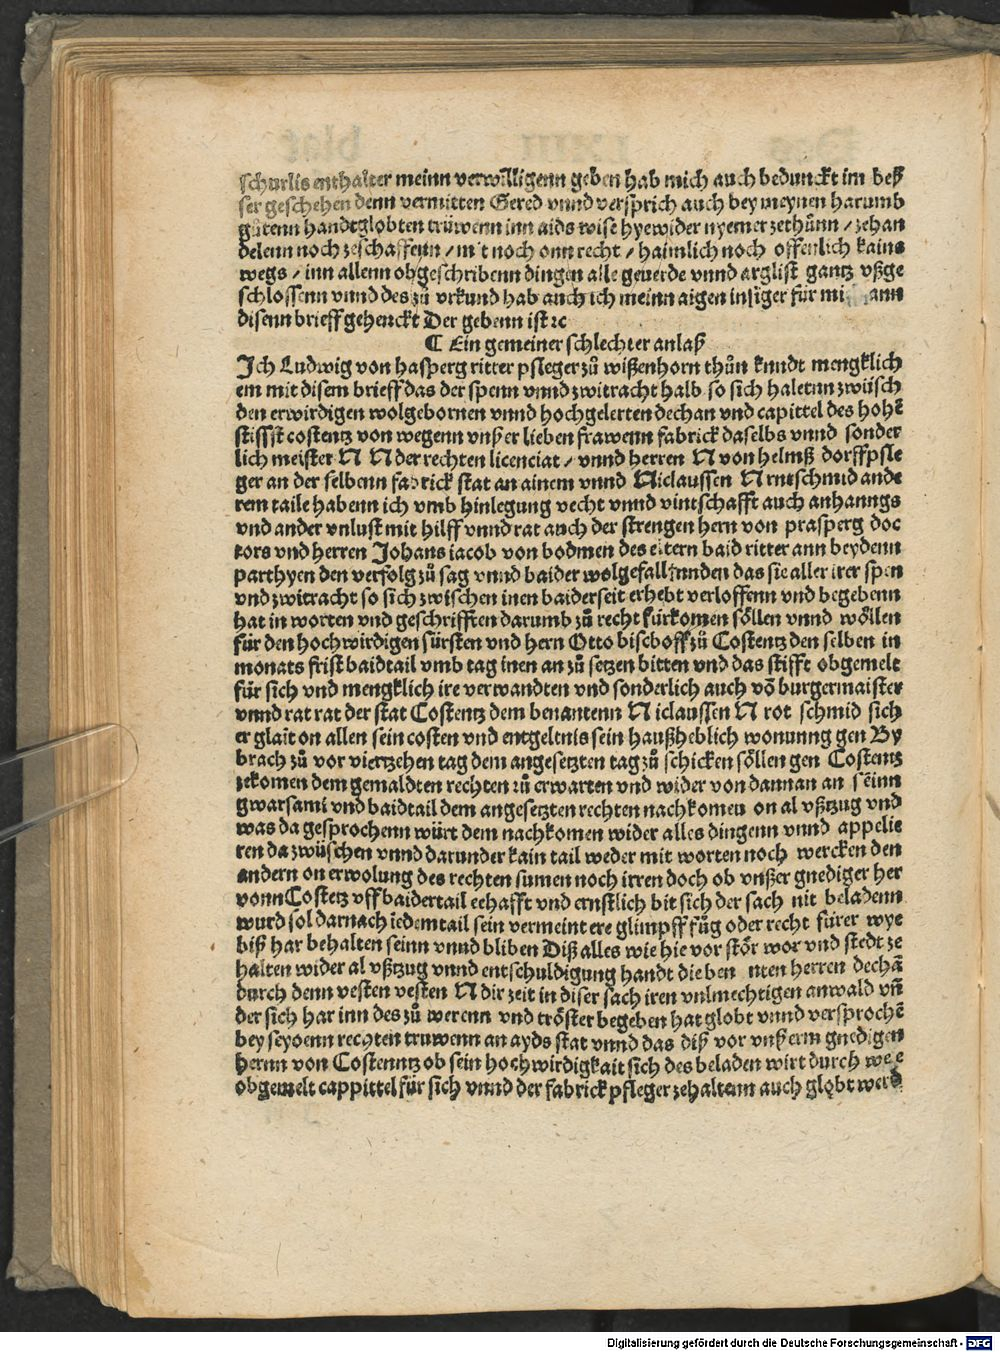 schurlis enthalter meinn verwilligenn geben hab mich auch bedunckt im beß
ser geschehen denn vermitten Gered vnnd versprich auch bey meynen harumb
gůtenn handtglobten trüwenn inn aids wise hyewider nyemer zethůnn / zehan
delenn noch zeschaffenn / mit noch onn recht / haimlich noch offenlich kains
wegs / inn allenn obgeschribenn dingen alle geuerde vnnd arglist gantz vßge
schlossenn vnnd des zů vrkund hab auch ich meinn aigen insiger für ann
disenn brieff gehenckt Der gebenn ist ꝛc
⁋ Ein gemeiner schlechter anlaß
Ich Ludwig von hasperg ritter psleger zů wißenhorn thůn knndt mengklich
em mit disem brieff das der spenn vnnd zwitracht halb so sich haletnn zwüsch
den erwirdigen wolgebornen vnnd hochgelerten dechan vnd capittel des hohē
stissst costentz von wegenn vnßer lieben frawenn fabrick daselbs vnnd sonder
lich meister N N der rechten licenciat / vnnd herren N von helmß dorffpsle
ger an der selbenn fabrick stat an ainem vnnd Niclaussen N rntschmid ande
rem taile habenn ich vmb hinlegung vecht vnnd vintschafft auch anhanngs
vnd ander vnlust mit hilff vnnd rat auch der strengen hern von prasperg doc
tors vnd herren Johans iacob von bodmen des eltern baid ritter ann beydenn
parthyen den verfolg zů sag vnnd baider wolgefall funden das sie aller irer spen
vnd zwitracht so sich zwischen inen baiderseit erhebt verloffenn vnd begebenn
hat in worten vnd geschrifften darumb zů recht fürkomen söllen vnnd wöllen
für den hochwirdigen sürsten vnd hern Otto bischoff zů Costentz den selben in
monats frist baidtail vmb tag inen an zů setzen bitten vnd das stifft obgemelt
für sich vnd mengklich ire verwandten vnd sonderlich auch vō burgermaister
vnnd rat rat der stat Costentz dem benantenn N iclaussen N rot schmid sich
er glait on allen sein costen vnd entgeltnis sein haußheblich wonunng gen By
brach zů vor viertzehen tag dem angesetzten tag zů schicken söllen gen Costentz
zekomen dem gemaldten rechten zů erwarten vnd wider von dannan an seinn
gwarsami vnd baidtail dem angesetzten rechten nachkomen on al vßtzug vnd
was da gesprochenn würt dem nachkomen wider alles dingenn vnnd appelie
ren da zwüschen vnnd darunder kain tail weder mit worten noch wercken den
andern on erwolung des rechten sumen noch irren doch ob vnßer gnediger her
vonn Costetz vff baidertail eehafft vnd ernstlich bit sich der sach nit beladenn
wurd sol darnach iedem tail sein vermeint ere glimpff fůg oder recht fürer wye
biß har behalten seinn vnnd bliben Diß alles wie hie vor stör wor vnd stedt ze
halten wider al vßtzug vnnd entschuldigung handt die ben nten herren dechā
durch denn vesten vesten N dir zeit in diser sach iren vnlmechtigen anwald vn̄
der sich har inn des zů werenn vnd tröster begeben hat globt vnnd versprochē
bey seyoenn rechten truwenn an ayds stat vnnd das diß vor vnßerm gnedigen
hernn von Costenntz ob sein hochwirdigkait sich des beladen wirt durch
obgemelt cappittel für sich vnnd der fabrick pfleger zehaltenn auch globt werd
Digitalisierung gefördert durch die Deutsche Forschungsgemeinschaft - DFG